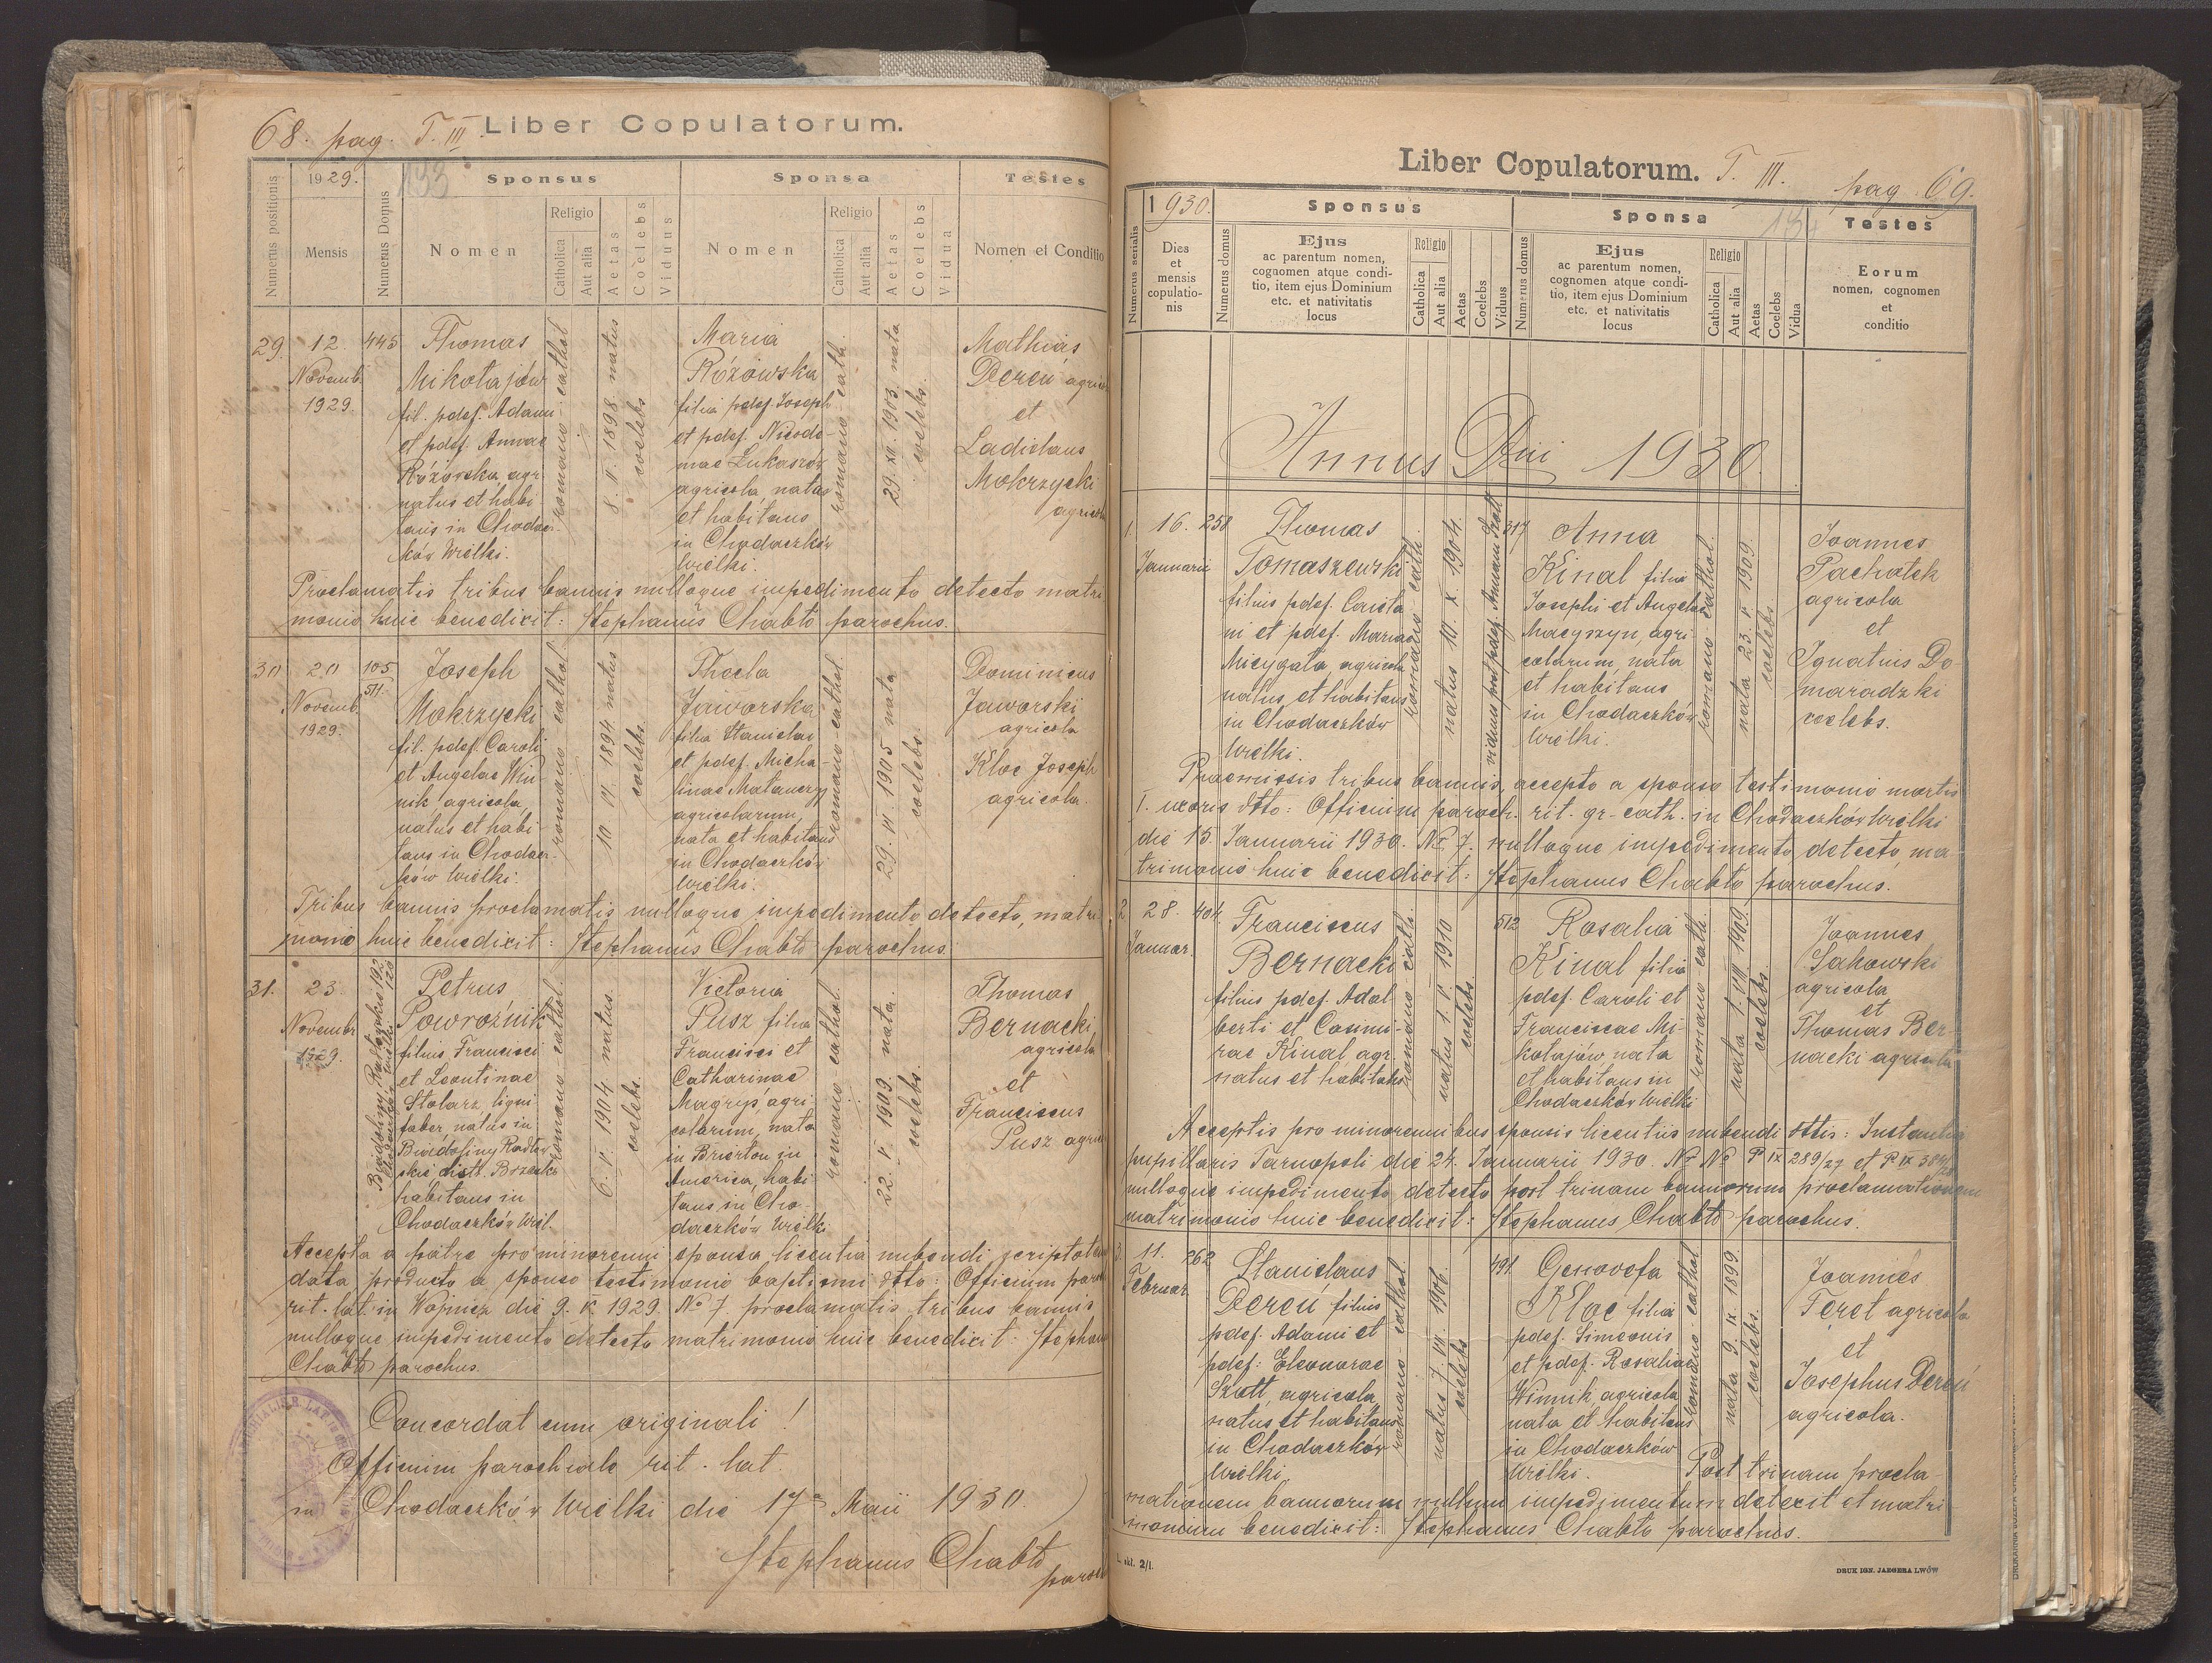 68. pag. T. III. Liber Copulatorum.
133
Numerus positionis
1929.
Mensis
Numerus Domus
Sponsus
Nomen
Religio
Catholica
Aut alia
Aetas
Coelebs
Viduus
Sponsa
Nomen
Religio
Catholica
Aut alia
Aetas
Coelebs
Vidua
Testes
Nomen et Conditio
29.
12.
Novemb.
1929.
445
Thomas
Mikołajów
fil. pdef. Adami
et pdef. Annae
Różowska, agr.
natus et habi
tans in Chodacz
ków Wielki.
romano cathol
8. V. 1898 natus
coelebs
Maria
Różowska
filia pdef. Joseph
et pdef. Nicode-
mae Łukaszów
agricola, nata
et habitans
in Chodaczków
Wielki.
romano cath.
29. XII. 1903. nata
coelebs.
Mathias
Dereń agrico
et
Ladislaus
Mokrzycki
agricola
Proclamatis tribus bannis nulloque impedimento detecto matri
monio huic benedixit: Stephanus Chabło parochus.
30
20
Novemb.
1929.
105
511.
Joseph
Mokrzycki
fil. pdef. Caroli
et Angelae Win
nik agricola,
natus et habi-
tans in Chodacz-
ków Wielki.
romano cathol.
1894 natus
coelebs.
Thecla
Jaworska
filia Stanislai
et pdef. Micha-
linae
agricolarum,
nata et habitans
in Chodaczków
Wielki.
romano-cathol.
29. VI. 1905 nata
coelebs.
Dominicus
Jaworski
agricola
Kloc Joseph
agricola.
Tribus bannis proclamatis nulloque impedimento detecto, matri-
monio huic benedixit: Stephanus Chabło parochus.
31.
23.
Novembr
1929.
Petrus
Powroźnik
filius Francisci
et Leontinae
Stolarz ligni
faber, natus in
Biadoliny Radłow
skie distr. Brzesko
habitans in
Chodaczków Wiel.
romano-cathol.
6. V. 1904 natus.
coelebs.
Victoria
Pusz filia
Francisci et
Catharinae
Magryś, agri-
colarum, nata
in Brierton in
America, habi
tans in Cho-
daczków Wielki
romano-cathol.
22. V. 1909. nata.
coelebs.
Thomas
Bernacki,
agricola
et
Franciscus
Pusz agric
Accepta a patre pro minorenni sponsa licentia nubendi scripto
data producto a sponso testimonio baptismi dtto: Officium paroch
rit. lat. in Wojnicz die 9. X. 1929. No 7. proclamatis tribus bannis
nulloque impedimento detecto matrimonio huic benedixit: Stephanus
Chabło parochus.
Concordat cum originali!
Officium parochiale rit. lat.
in Chodaczków Wielki die 17a Maii 1930.
Stephanus Chabło
paroch
Liber Copulatorum. T. III. pag 69.
Numerus serialis
1930.
Dies
et
mensis
copulatio-
nis
Sponsus
Numerus domus
Ejus
ac parentum nomen,
cognomen atque condi-
tio, item ejus Dominium
etc. et nativitatis
locus
Religio
Catholica
Aut alia
Aetas
Coelebs
Viduus
Sponsa
Numerus domus
Ejus
ac parentum nomen,
cognomen atque condi-
tio, item ejus Dominium
etc. et nativitatis
locus
Religio
Catholica
Aut alia
Aetas
Coelebs
Vidua
Testes
Eorum
nomen, cognomen
et
conditio
Annus Dni 1930.
1.
16.
Januarii
258
Thomas
Tomaszewski
filius pdef. Caieta
ni et pdef. Mariae
Micygała, agricola
natus et habitans
in Chodaczków
Wielki.
romano cath.
natus 10. X. 1904.
viduus post pdef. Annam Szott
317
Anna
Kinal filia
Josephi et Angelae
Macyszyn, agri-
colarum, nata
et habitans
in Chodaczków
Wielki.
romano cathol.
nata 23. V. 1909.
coelebs.
Joannes
Pachołek
agricola
et
Ignatius Do-
maradzki
coelebs.
Praemissis tribus bannis, accepto a sponso testimonio mortis
I. uxoris dtto: Officium paroch. rit. gr-cath. in Chodaczków Wielki
die 15. Januarii 1930. No 7. nulloque impedimento detecto, ma-
trimonio huic benedixit: Stephanus Chabło parochus.
2
28.
Januar.
404
Franciscus
Bernacki
filius pdef. Adal
berti et Casimi-
rae Kinal agr.
natus et habitans
romano cath.
natus 1. V. 1910
coelebs.
512
Rosalia
Kinal filia
pdef. Caroli et
Franciscae Mi-
kołajów, nata
et habitans in
Chodaczków Wielki
romano-cath.
nata 1. VII. 1909.
coelebs.
Joannes
Sahowski
agricola
et
Thomas Ber-
nacki agricola
Acceptis pro minorennibus sponsis licentiis nubendi dttis: Instantia
pupillaris Tarnopoli die 24. Januarii 1930. No No P IX 289/27 et P IX 384/28
nulloque impedimento detecto post trinam bannorum proclamationem
matrimonio huic benedixit: Stephanus Chabło parochus.
3.
11.
Februar.
262
Stanislaus
Dereń filius
pdef. Adami et
pdef. Eleonorae
Szott, agricola,
natus et habitans
in Chodaczków
Wielki.
romano-cathol.
natus 7. VII. 1906.
coelebs
491
Genovefa
Kloc filia
pdef. Simeonis
et pdef. Rosaliae
Winnik, agricola
nata et habitans
in Chodaczków
Wielki.
romano-cathol
nata 9. IX. 1899.
coelebs.
Joannes
Feret agricola
et
Josephus Dereń
agricola.
Post trinam procla-
mationem bannorum nullum impedimentum detexit et matri-
monium benedixit: Stephanus Chabło parochus.
DRUK IGN. JAEGERA LWÓW